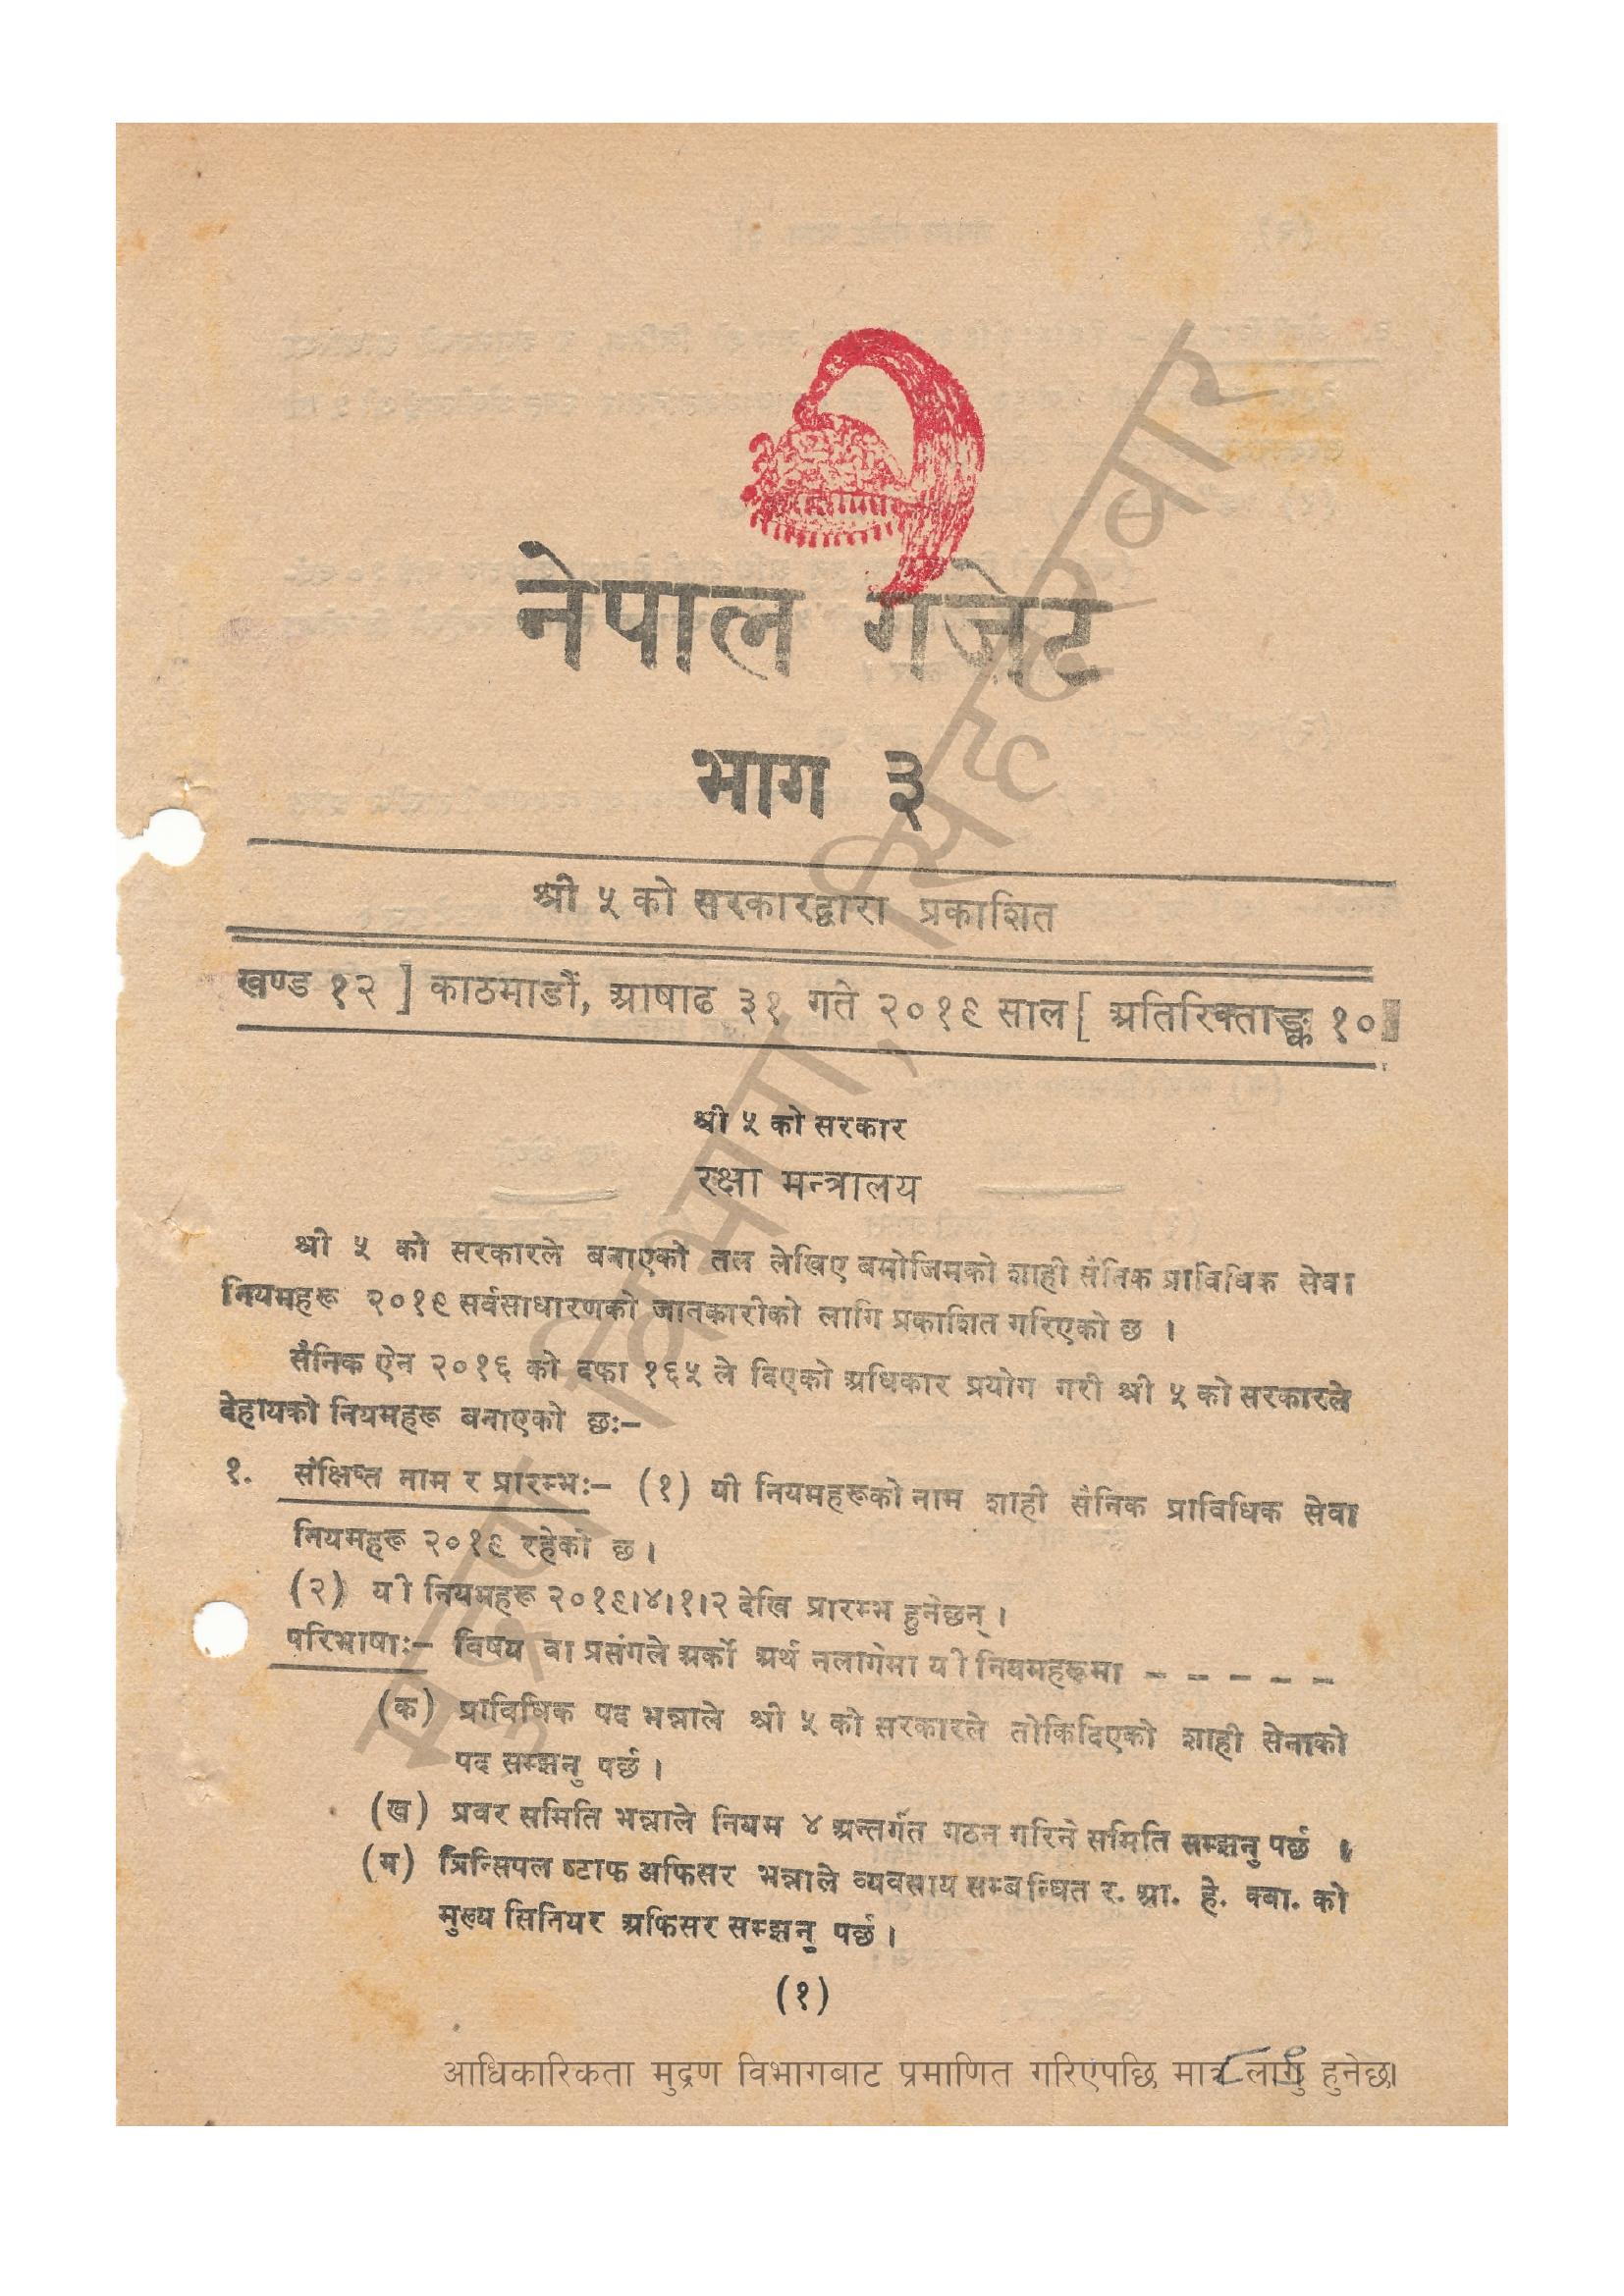 नेपाल गजेट
भाग ३
श्री ५ को सरकारद्वारा प्रकाशित
खण्ड १२ ] काठमाडौं, आषाढ ३१ गते २०१९ साल [ अतिरिक्ताङ्क १०
श्री ५ को सरकार
रक्षा मन्त्रालय
श्री ५ को सरकारले बनाएको तल लेखिए बमोजिमको शाही सैनिक प्राविधिक सेवा
नियमहरू २०१९ सर्वसाधारणको जानकारीको लागि प्रकाशित गरिएको छ ।
सैनिक ऐन २०१६ को दफा १६५ ले दिएको अधिकार प्रयोग गरी श्री ५ को सरकारले
देहायको नियमहरू बनाएको छ:–
१. संक्षिप्त नाम र प्रारम्भ:– (१) यी नियमहरूको नाम शाही सैनिक प्राविधिक सेवा
नियमहरू २०१९ रहेको छ ।
(२) यी नियमहरू २०१९।४।१।२ देखि प्रारम्भ हुनेछन् ।
परिभाषा:– विषय वा प्रसंगले अर्को अर्थ नलागेमा यी नियमहरूमा – – – – – –
(क) प्राविधिक पद भन्नाले श्री ५ को सरकारले तोकिदिएको शाही सेनाको
पद सम्झनु पर्छ ।
(ख) प्रवर समिति भन्नाले नियम ४ अन्तर्गत गठन गरिने समिति सम्झनु पर्छ ।
(ग) प्रिन्सिपल ष्टाफ अफिसर भन्नाले व्यवसाय सम्बन्धित र. आ. हे. क्वा. को
मुख्य सिनियर अफिसर सम्झनु पर्छ ।
(१)
आधिकारिकता मुद्रण विभागबाट प्रमाणित गरिएपछि मात्र लागु हुनेछ।
मुद्रण विभाग, सिंहदरबार